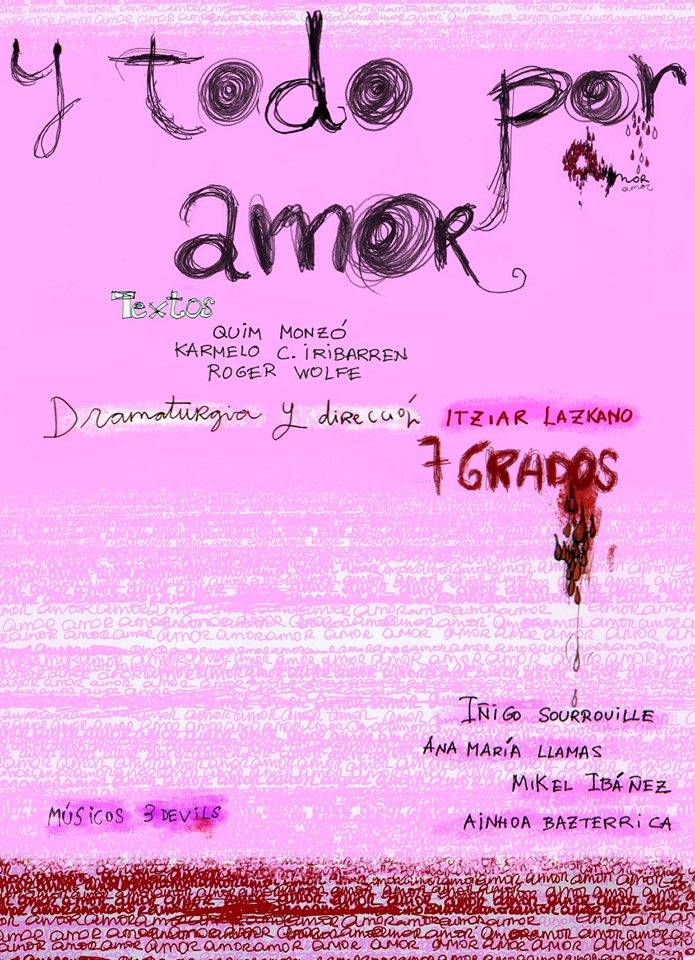 y todo por
amor
amor
amor
Textos
QUIM MONZÓ
KARMELO C. IRIBARREN
ROGER WOLFE
Dramaturgia y dirección ITZIAR LAZKANO
7 GRADOS
amor amor amor amor amor amor amor amor amor amor
IÑIGO SOURROUILLE
ANA MARÍA LLAMAS
MIKEL IBÁÑEZ
MÚSICOS 3 DEVILS
AINHOA BAZTERRICA
amor amor amor amor amor amor amor amor amor amor